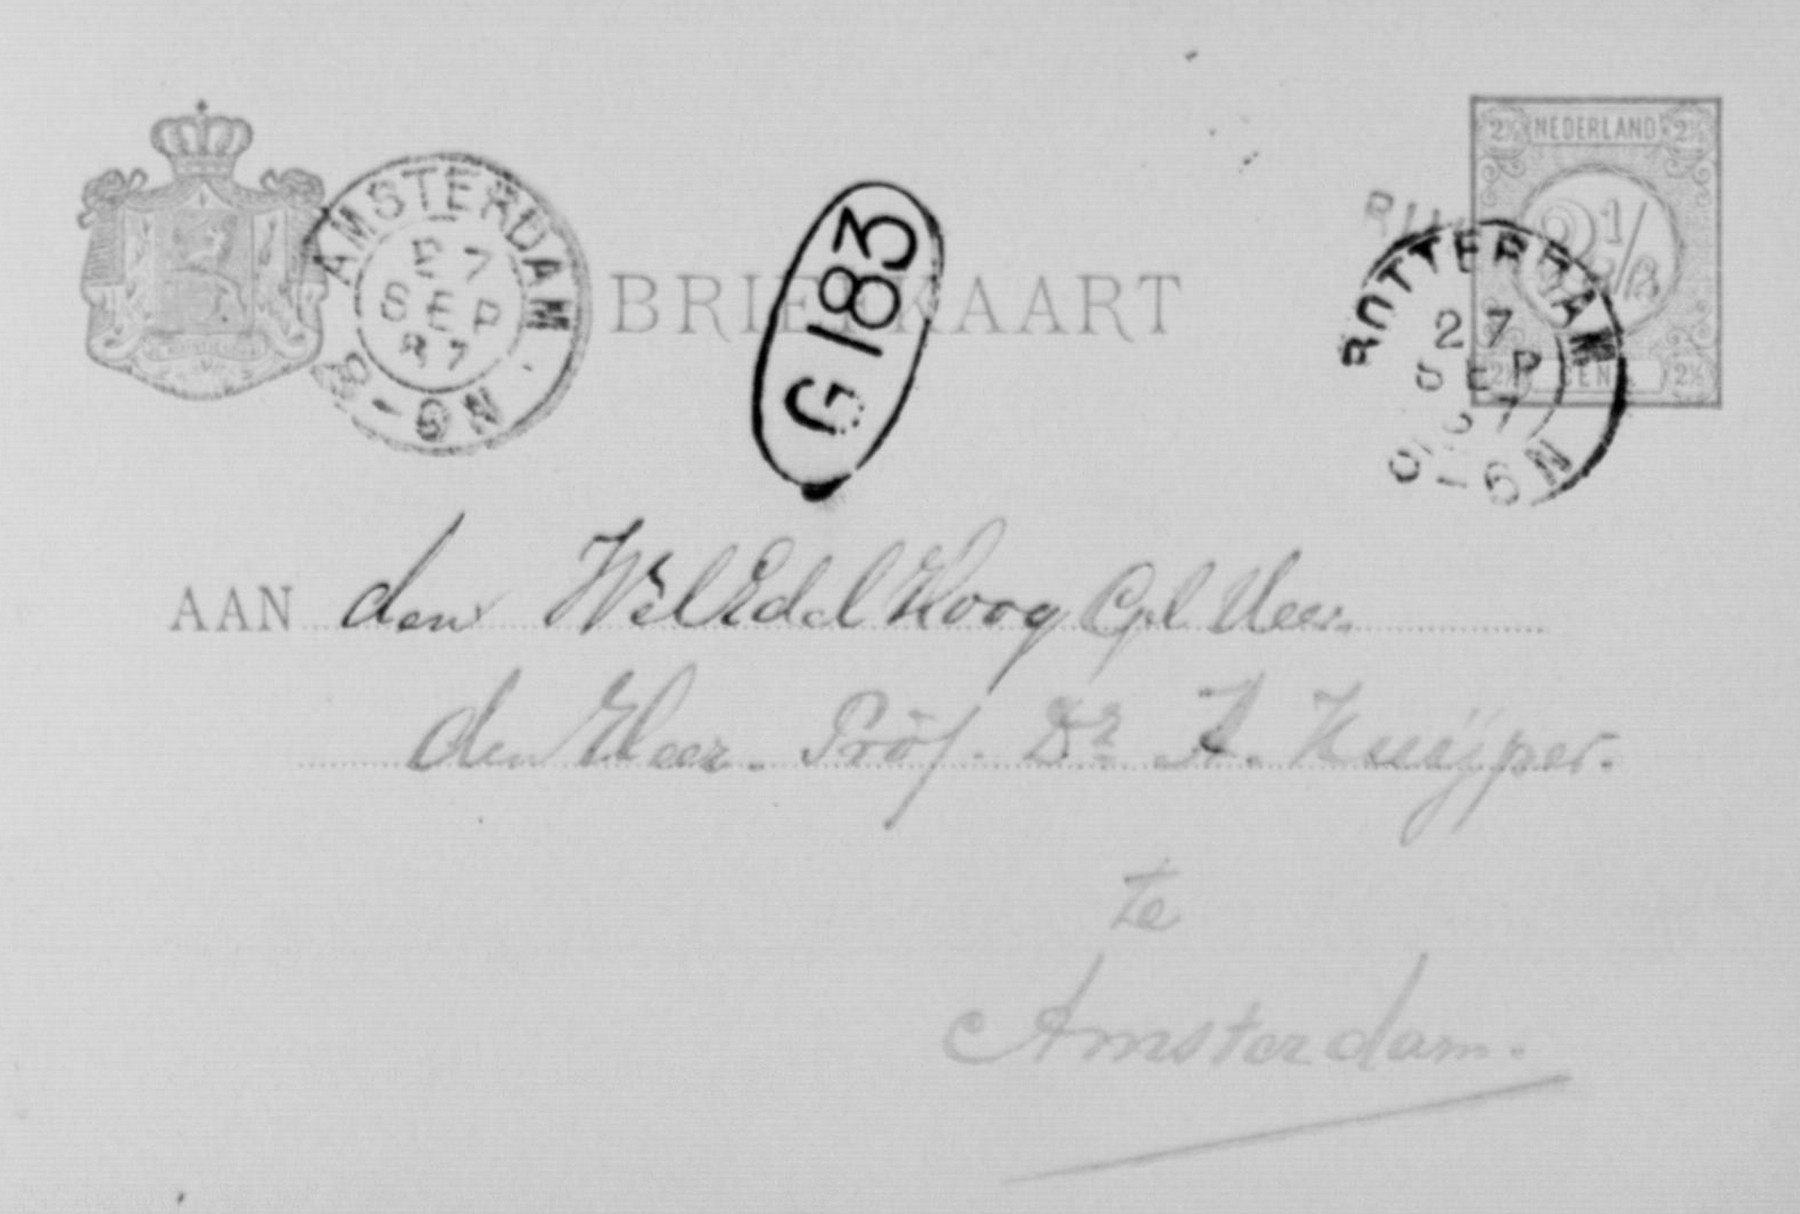 NEDERLAND
2½ 2½
2½
2½ CENT 2½
AMSTERDAM
27
SEP
87
8-9N
G183
BRIEFKAART
ROTTERDAM
27
SEP
87
5-6N
AAN den WelEdel Hoog Gel Heer
den Heer. Prof. Dr A. Kuijper.
te
Amsterdam.